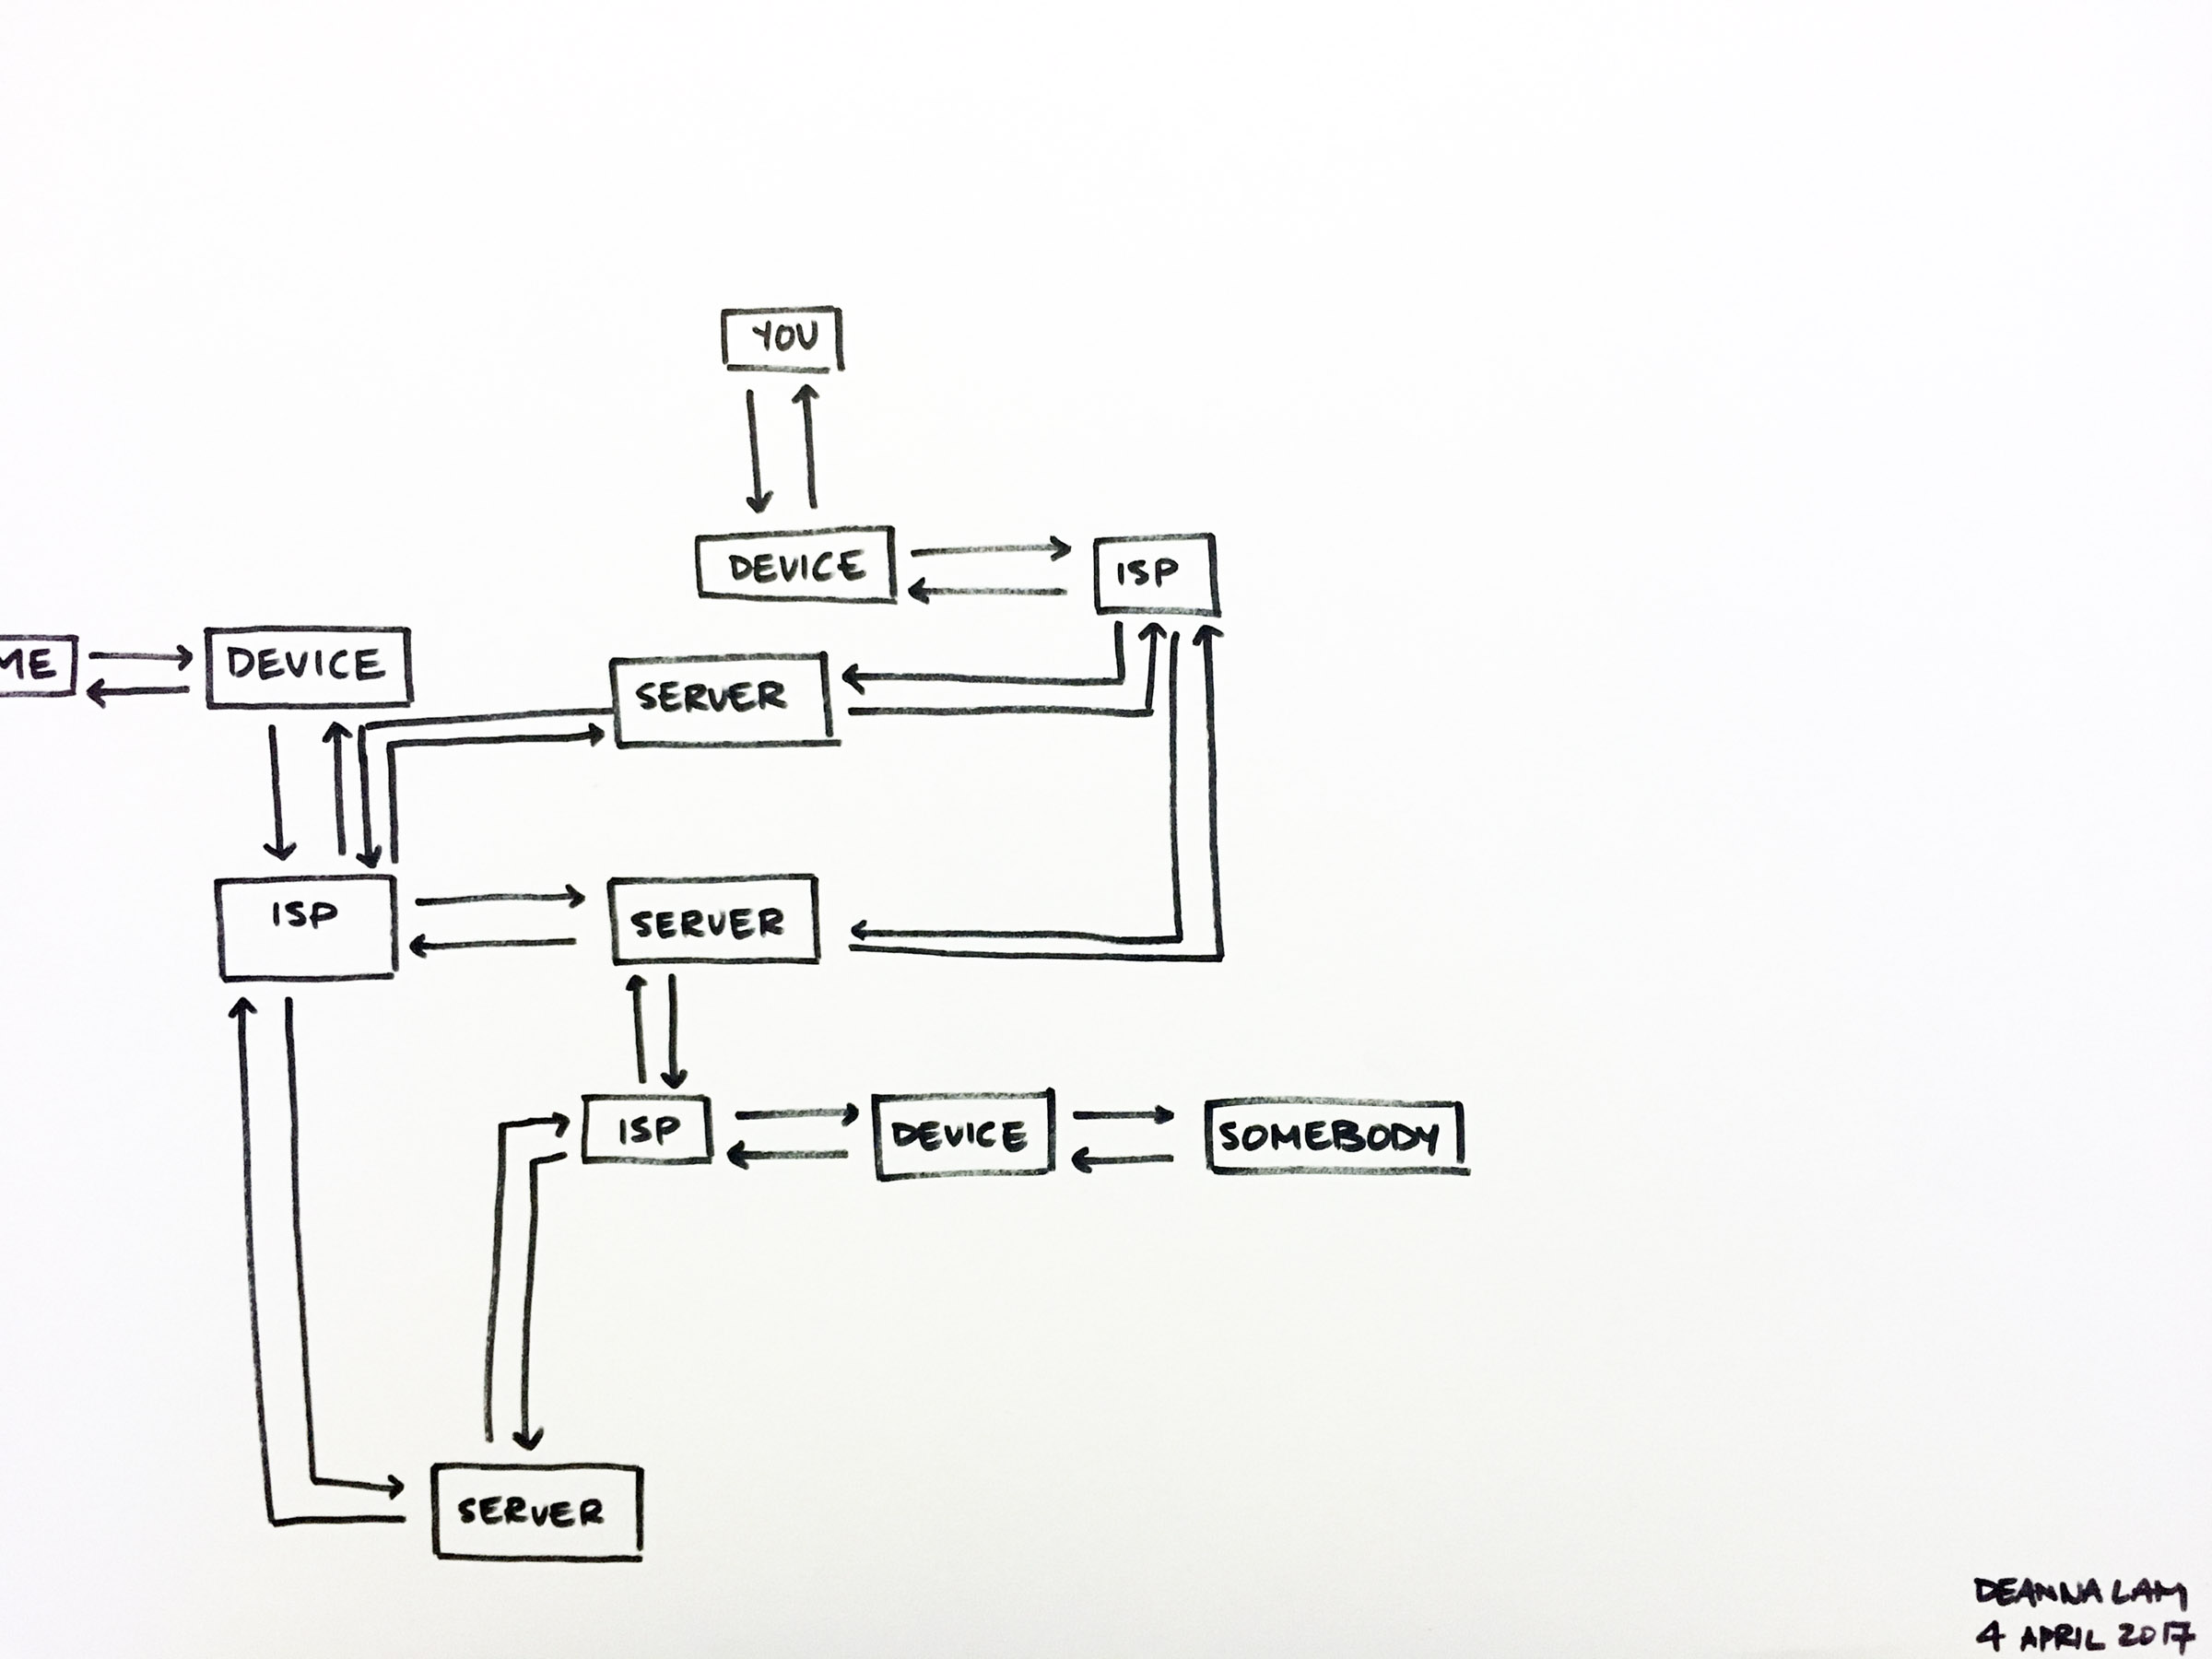 YOU
DEVICE
ISP
ME
DEVICE
SERVER
ISP
SERVER
ISP
DEVICE
SOMEBODY
SERVER
DEANNA LAM
4 APRIL 2017